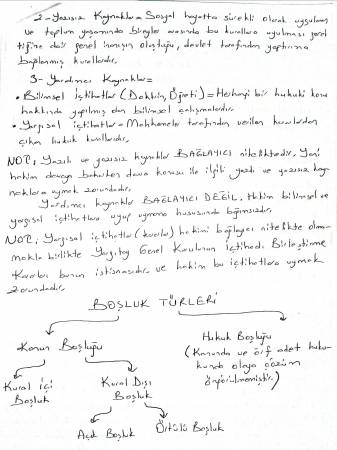 2- Yazısız Kaynaklar = Sosyal hayatta sürekli olarak uygulanan
ve toplum yaşamında bireyler arasında bu kurallara uyulması gerek
tiğine dair genel inanışın oluştuğu, devlet tarafından yaptırıma
bağlanmış kurallardır.
3- Yardımcı Kaynaklar =
• Bilimsel İçtihatlar (Doktrin, Öğreti) = Herhangi bir hukuki konu
hakkında yapılmış olan bilimsel çalışmalardır.
• Yargısal İçtihatlar = Mahkemeler tarafından verilen kararlardan
çıkan hukuk kurallarıdır.
NOT: Yazılı ve yazısız kaynaklar BAĞLAYICI niteliktedir. Yani
hakim davaya bakarken dava konusu ile ilgili yazılı ve yazısız kay-
naklara uymak zorundadır.
Yardımcı kaynaklar BAĞLAYICI DEĞİL. Hakim bilimsel ve
yargısal içtihatlara uyup uymama hususunda bağımsızdır.
NOT: Yargısal içtihatlar (kararlar) hakimi bağlayıcı nitelikte olma-
makla birlikte Yargıtay Genel Kurulunun İçtihadı Birleştirme
Kararları bunun istisnasıdır ve hakim bu içtihatlara uymak
zorundadır.
BOŞLUK TÜRLERİ
Kanun Boşluğu
Hukuk Boşluğu
(Kanunda ve örf adet huku-
kunda olaya çözüm
öngörülmemiştir.)
Kural İçi
Boşluk
Kural Dışı
Boşluk
Açık Boşluk
Örtülü Boşluk